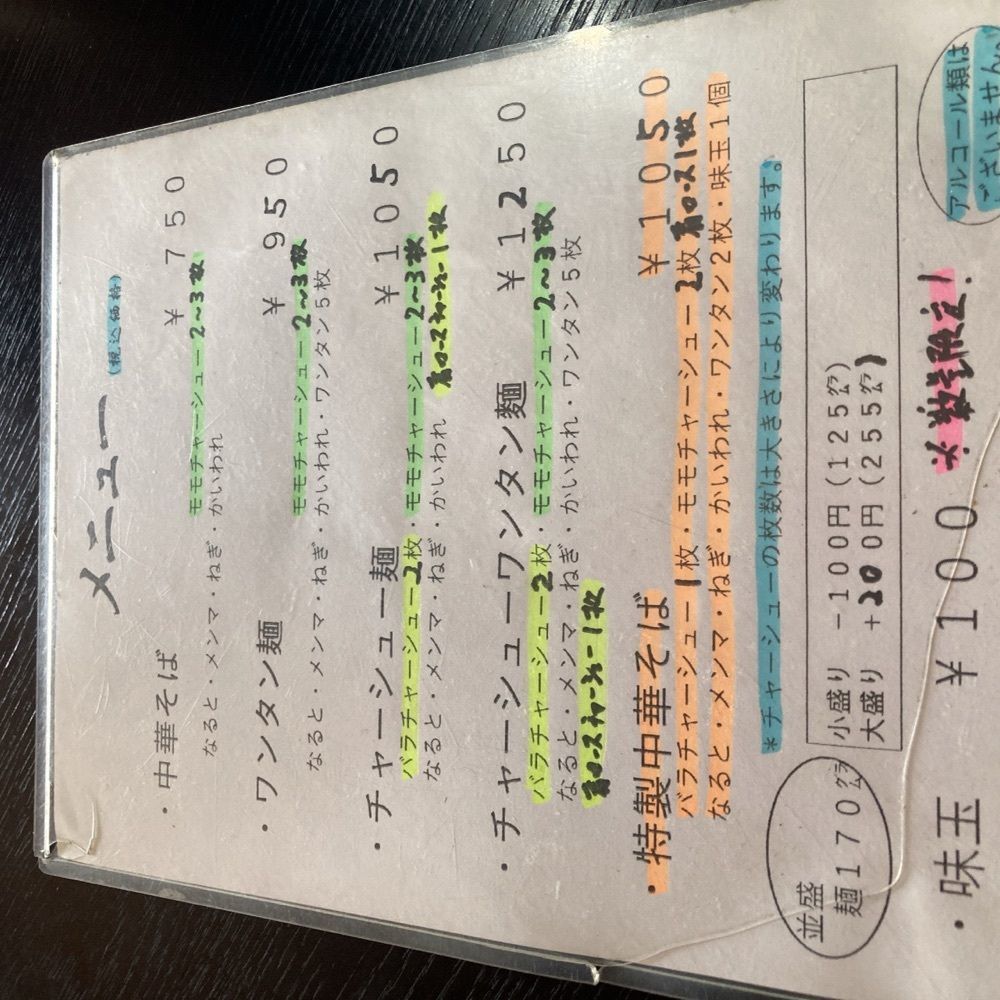 メニュー (税込価格)
・中華そば ￥750
モモチャーシュー2〜3枚
なると・メンマ・ねぎ・かいわれ
・ワンタン麺 ￥950
モモチャーシュー2〜3枚
なると・メンマ・ねぎ・かいわれ・ワンタン5枚
・チャーシュー麺 ￥1050
バラチャーシュー2枚・モモチャーシュー2〜3枚
なると・メンマ・ねぎ・かいわれ 肩ロースチャーシュー1枚
・チャーシューワンタン麺 ￥1250
バラチャーシュー2枚・モモチャーシュー2〜3枚
なると・メンマ・ねぎ・かいわれ・ワンタン5枚
肩ロースチャーシュー1枚
・特製中華そば ￥1050
バラチャーシュー1枚・モモチャーシュー2枚 肩ロース1枚
なると・メンマ・ねぎ・かいわれ・ワンタン2枚・味玉1個
*チャーシューの枚数は大きさにより変わります。
並盛
麺170㌘
小盛り －100円(125㌘)
大盛り ＋200円(255㌘)
・味玉 ￥100 ※数量限定!
アルコール類は
ございません。